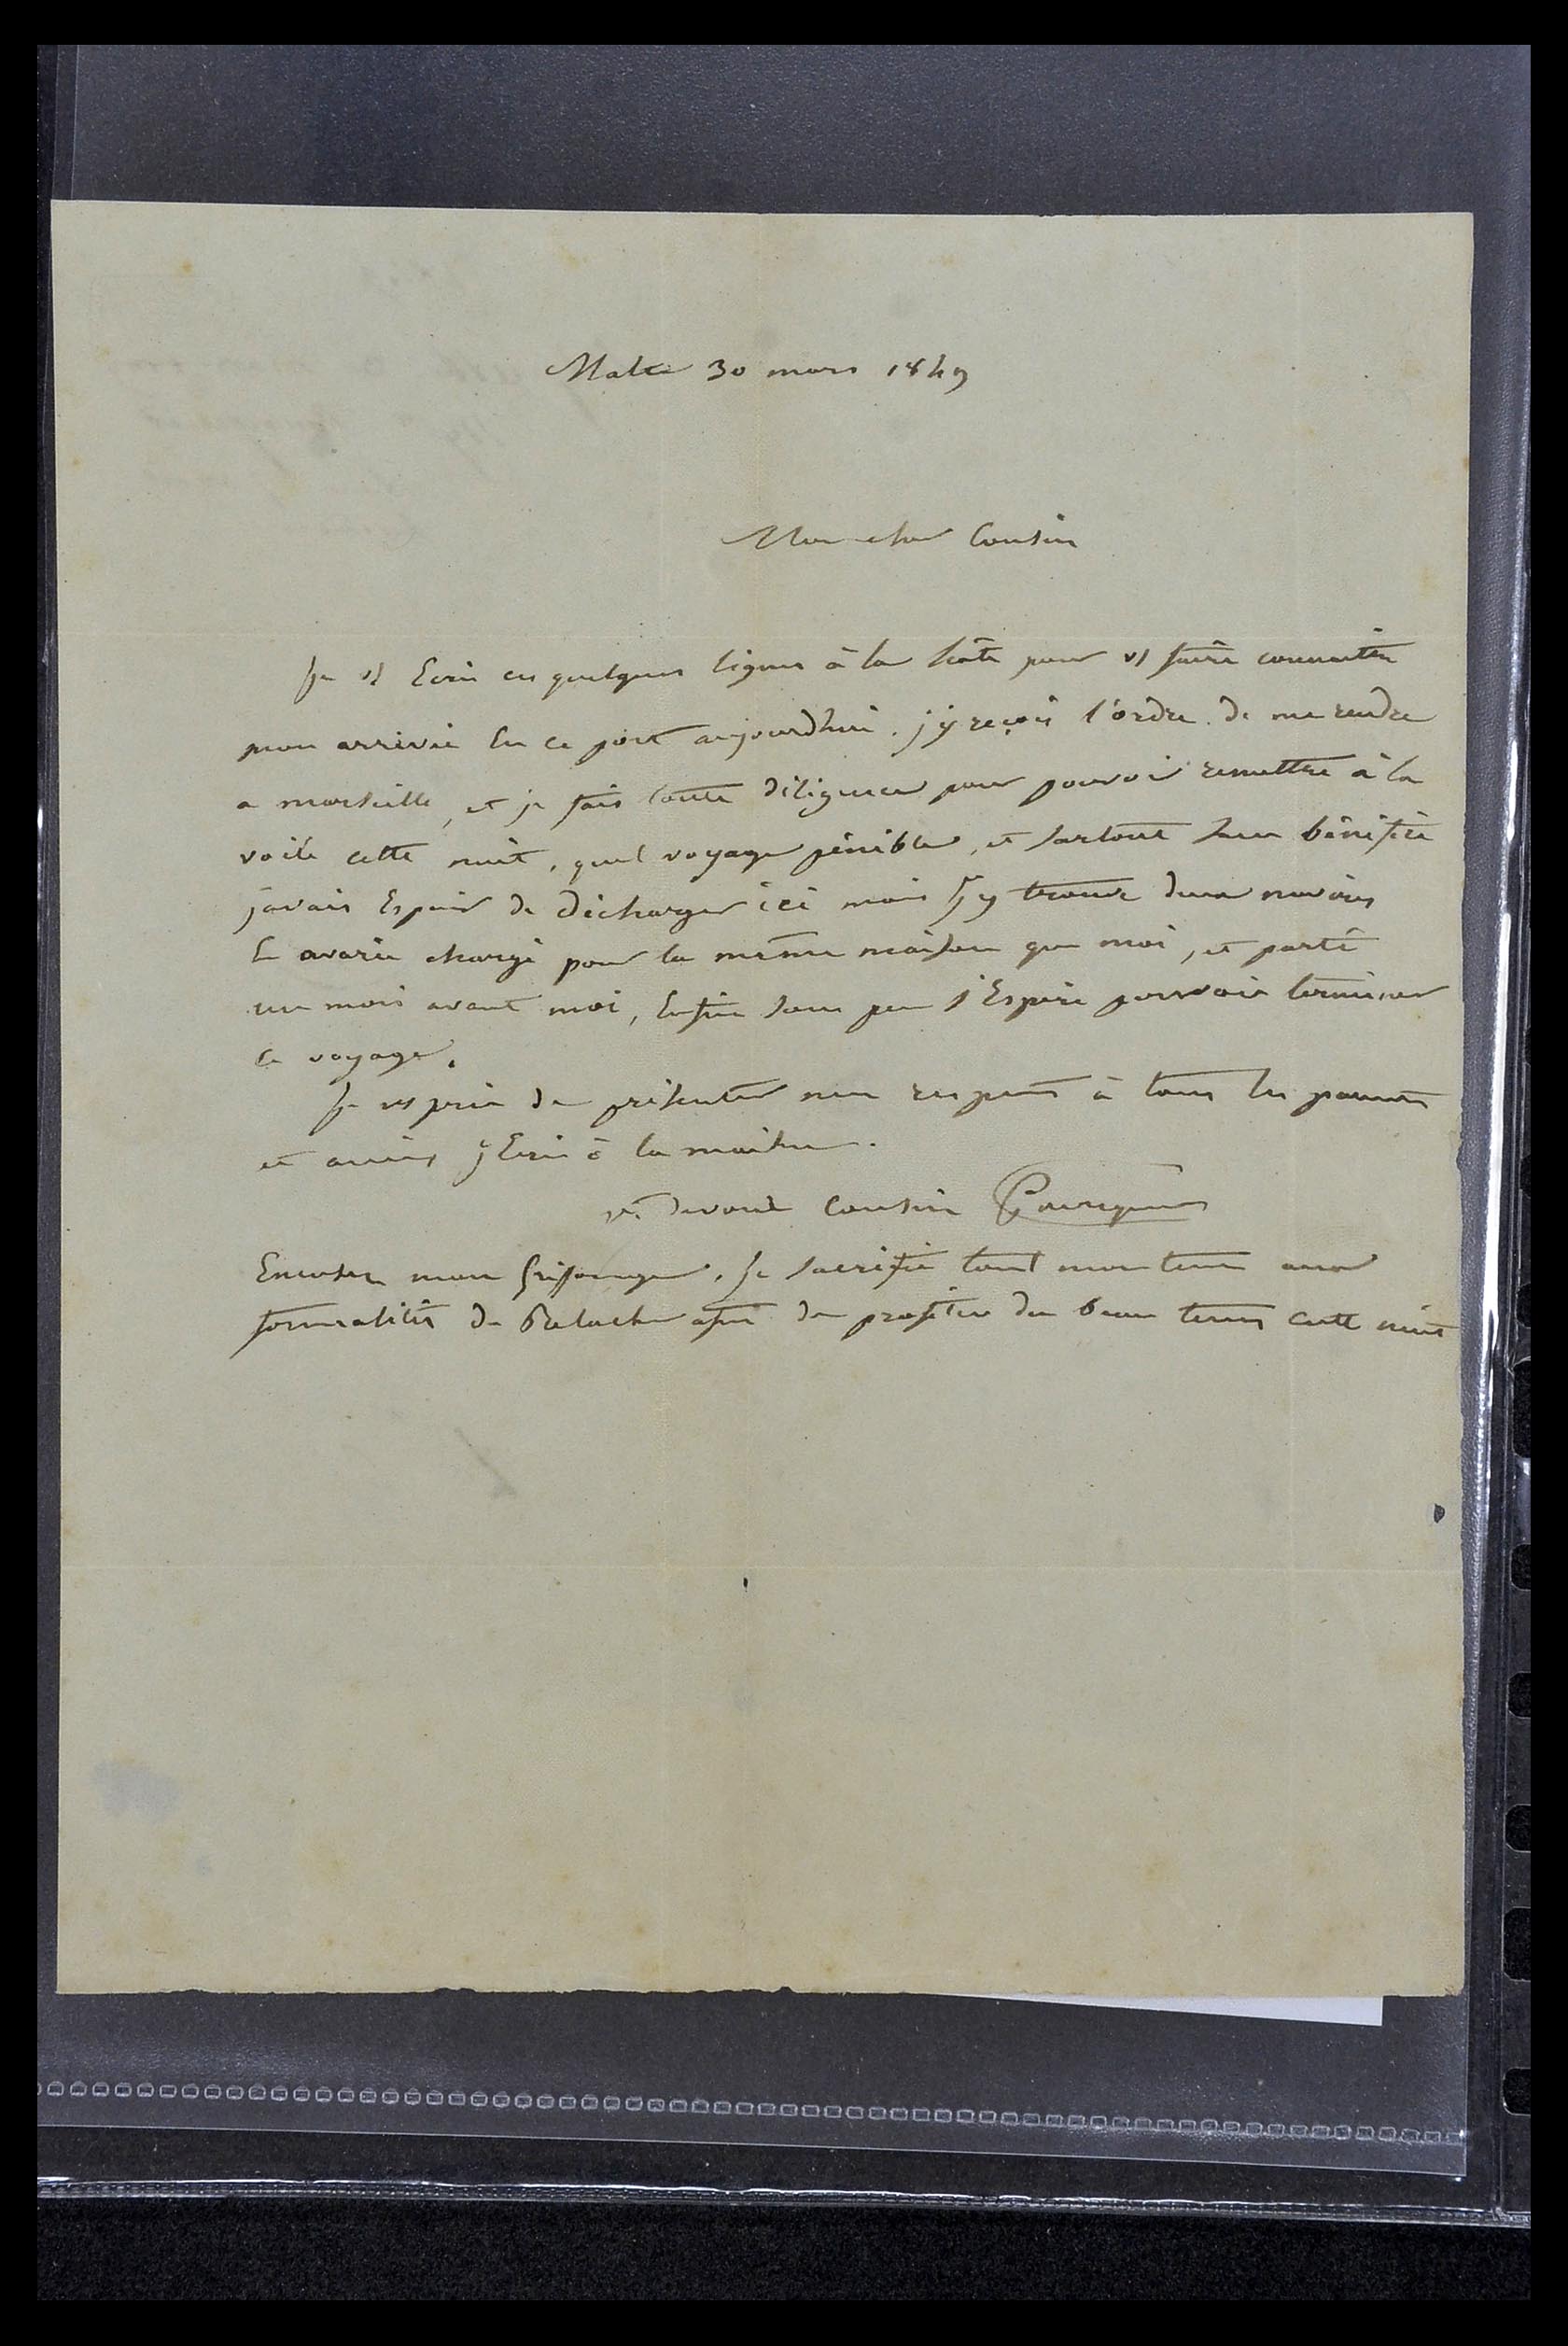 Malte 30 mars 1849
Mon cher Cousin
Je vs Ecris ces quelques lignes à la hâte pour vs faire connaitre
mon arrivée En ce port aujourdhui. j'y reçois l'ordre de me rendre
a marseille, et je fais toute diligence pour pouvoir remettre à la
voile cette nuit, quel voyage pénible, et surtout sans bénéfice
j'avais Espoir de décharger ici mais J'y trouve deux navires
En avarie chargé pour la même maison que moi, et parti
un mois avant moi, Enfin sous peu j'Espère pouvoir terminer
ce voyage.
Je vs prie de présenter mes respects à tous les parents
et amis, j'Ecris à la maison.
vt. devoué cousin
Excusez mon griffonage. Je sacrifie tout mon tems aux
formalités de Relache afin de profiter du beau tems cette nuit